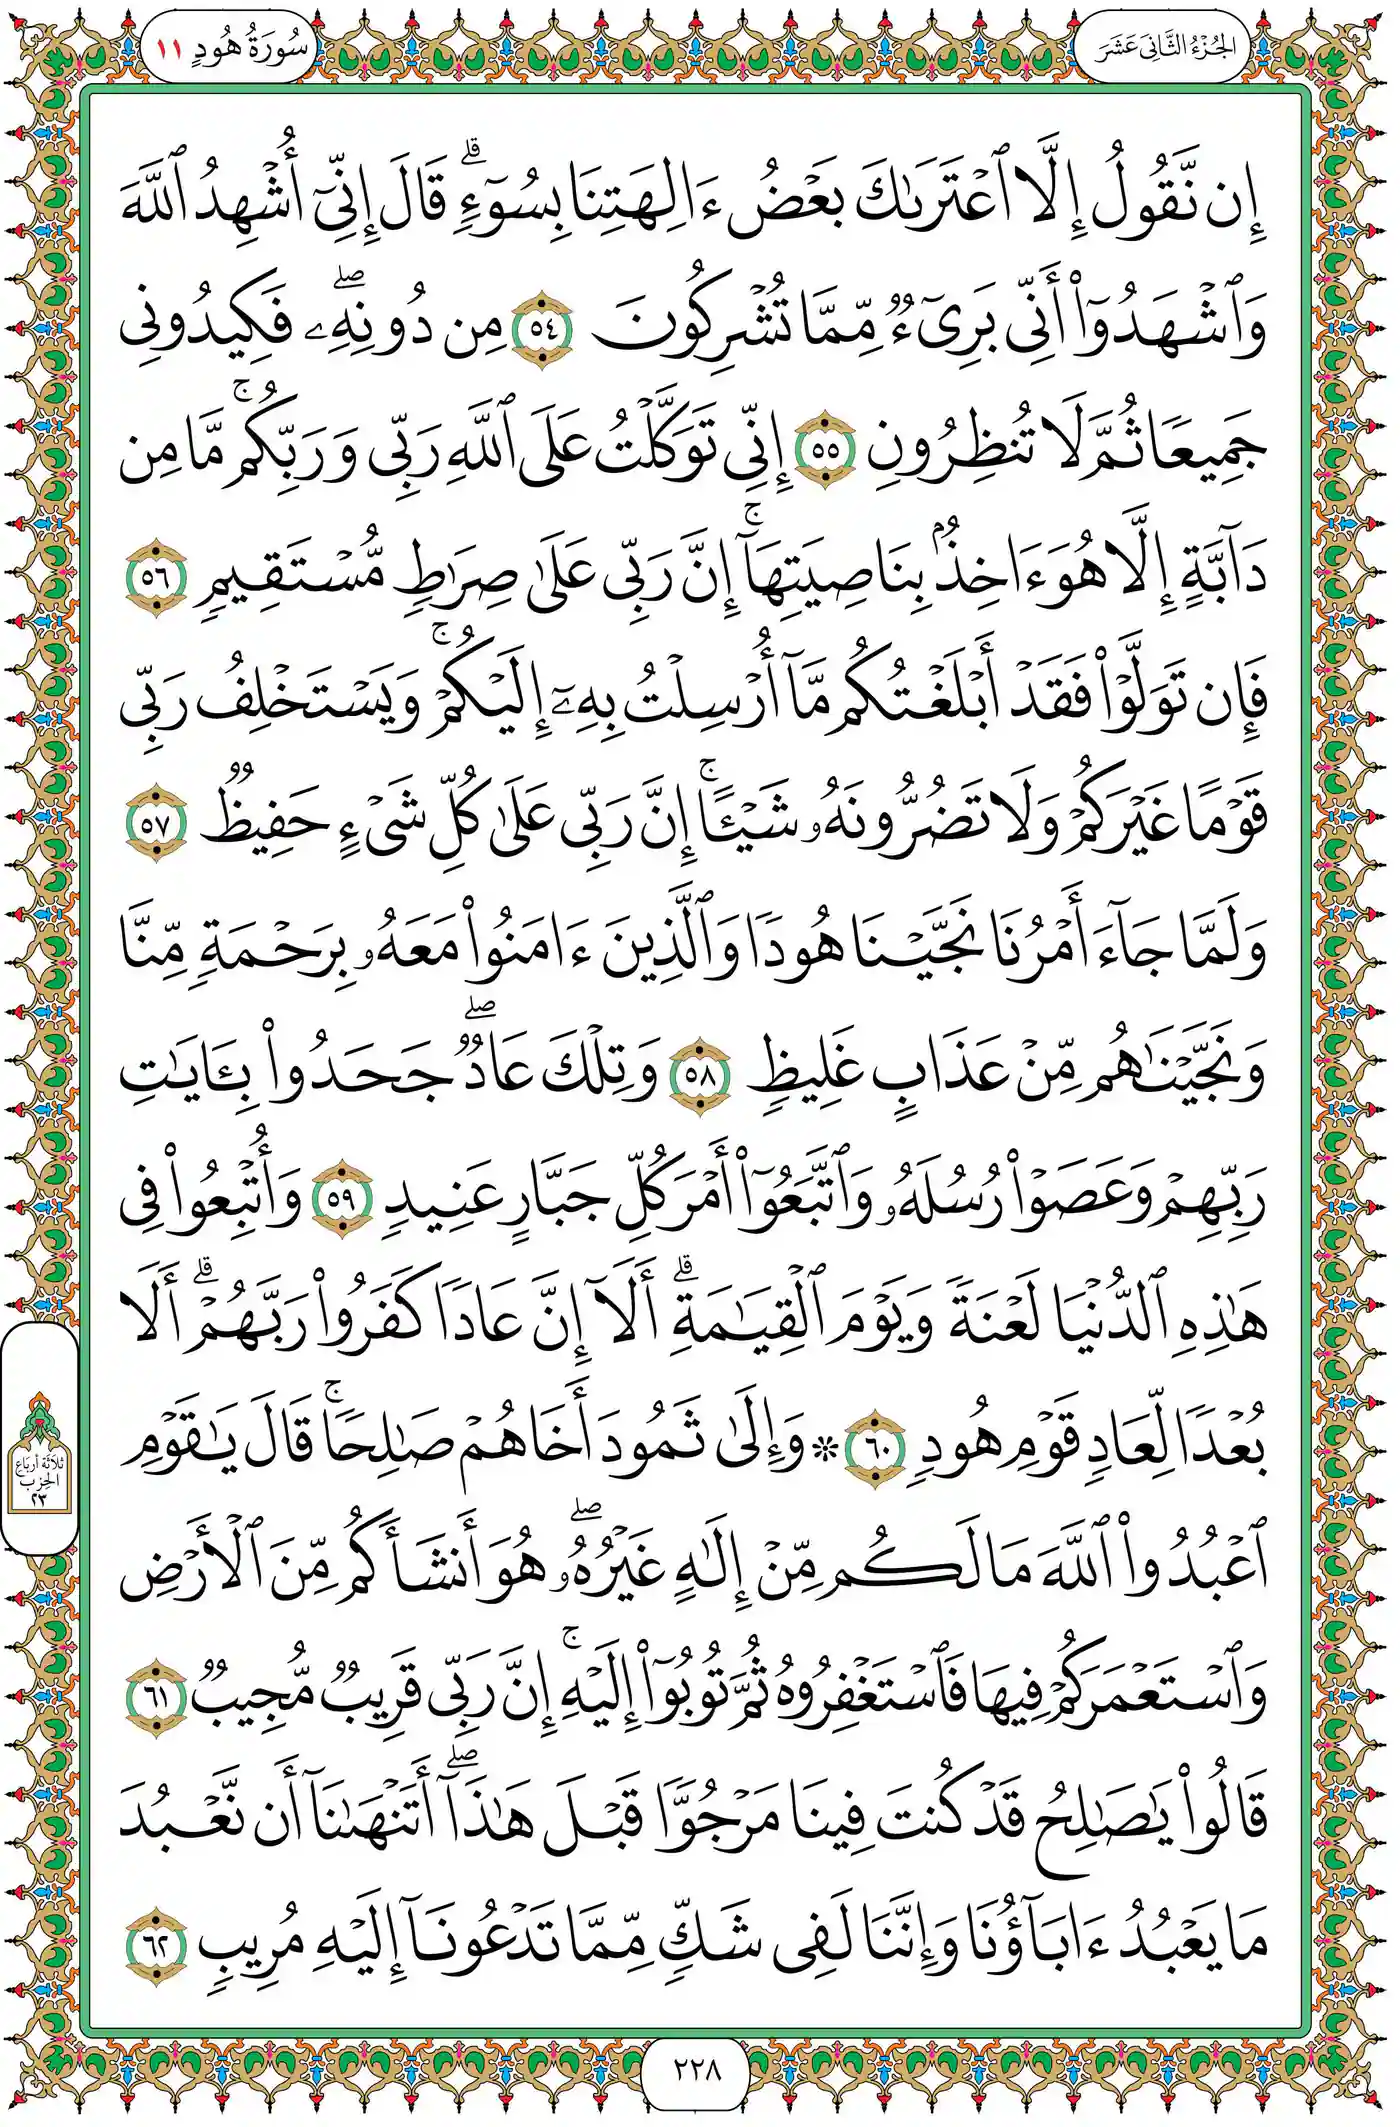 الجُزْءُ الثَّانِىَ عَشَرَ
سُورَةُ هُودٍ ١١
إِن نَّقُولُ إِلَّا ٱعۡتَرَىٰكَ بَعۡضُ ءَالِهَتِنَا بِسُوٓءٖۗ قَالَ إِنِّيٓ أُشۡهِدُ ٱللَّهَ
وَٱشۡهَدُوٓاْ أَنِّي بَرِيٓءٞ مِّمَّا تُشۡرِكُونَ ٥٤ مِن دُونِهِۦۖ فَكِيدُونِي
جَمِيعٗا ثُمَّ لَا تُنظِرُونِ ٥٥ إِنِّي تَوَكَّلۡتُ عَلَى ٱللَّهِ رَبِّي وَرَبِّكُمۚ مَّا مِن
دَآبَّةٍ إِلَّا هُوَ ءَاخِذُۢ بِنَاصِيَتِهَآۚ إِنَّ رَبِّي عَلَىٰ صِرَٰطٖ مُّسۡتَقِيمٖ ٥٦
فَإِن تَوَلَّوۡاْ فَقَدۡ أَبۡلَغۡتُكُم مَّآ أُرۡسِلۡتُ بِهِۦٓ إِلَيۡكُمۡۚ وَيَسۡتَخۡلِفُ رَبِّي
قَوۡمًا غَيۡرَكُمۡ وَلَا تَضُرُّونَهُۥ شَيۡـًٔاۚ إِنَّ رَبِّي عَلَىٰ كُلِّ شَيۡءٍ حَفِيظٞ ٥٧
وَلَمَّا جَآءَ أَمۡرُنَا نَجَّيۡنَا هُودٗا وَٱلَّذِينَ ءَامَنُواْ مَعَهُۥ بِرَحۡمَةٖ مِّنَّا
وَنَجَّيۡنَٰهُم مِّنۡ عَذَابٍ غَلِيظٖ ٥٨ وَتِلۡكَ عَادٞۖ جَحَدُواْ بِـَٔايَٰتِ
رَبِّهِمۡ وَعَصَوۡاْ رُسُلَهُۥ وَٱتَّبَعُوٓاْ أَمۡرَ كُلِّ جَبَّارٍ عَنِيدٖ ٥٩ وَأُتۡبِعُواْ فِي
هَٰذِهِ ٱلدُّنۡيَا لَعۡنَةٗ وَيَوۡمَ ٱلۡقِيَٰمَةِۗ أَلَآ إِنَّ عَادٗا كَفَرُواْ رَبَّهُمۡۗ أَلَا
بُعۡدٗا لِّعَادٖ قَوۡمِ هُودٖ ٦٠ ۞ وَإِلَىٰ ثَمُودَ أَخَاهُمۡ صَٰلِحٗاۚ قَالَ يَٰقَوۡمِ
ٱعۡبُدُواْ ٱللَّهَ مَا لَكُم مِّنۡ إِلَٰهٍ غَيۡرُهُۥۖ هُوَ أَنشَأَكُم مِّنَ ٱلۡأَرۡضِ
وَٱسۡتَعۡمَرَكُمۡ فِيهَا فَٱسۡتَغۡفِرُوهُ ثُمَّ تُوبُوٓاْ إِلَيۡهِۚ إِنَّ رَبِّي قَرِيبٞ مُّجِيبٞ ٦١
قَالُواْ يَٰصَٰلِحُ قَدۡ كُنتَ فِينَا مَرۡجُوّٗا قَبۡلَ هَٰذَآۖ أَتَنۡهَىٰنَآ أَن نَّعۡبُدَ
مَا يَعۡبُدُ ءَابَآؤُنَا وَإِنَّنَا لَفِي شَكّٖ مِّمَّا تَدۡعُونَآ إِلَيۡهِ مُرِيبٖ ٦٢
ثلاثة أرباع
الحزب
٢٣
٢٢٨